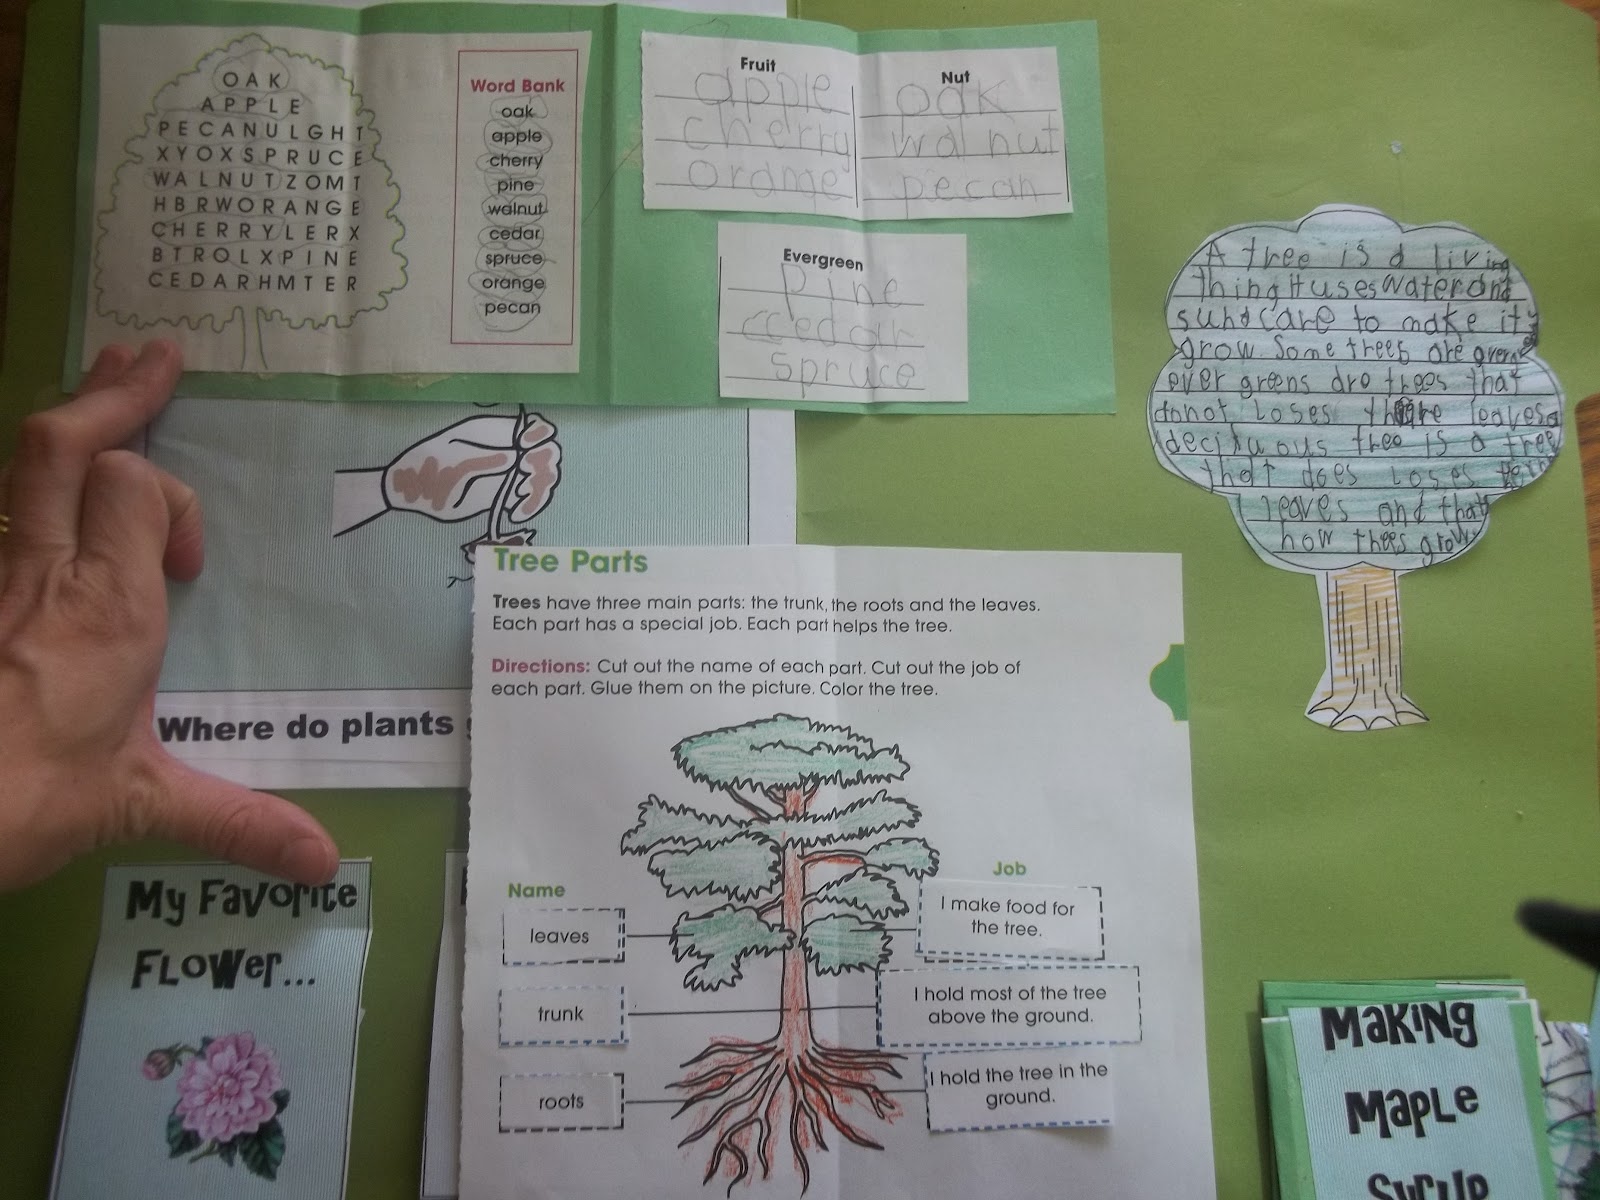 OAK
APPLE
PECANULGHT
XYOXSPRUCE
WALNUTZOMT
HBRWORANGE
CHERRYLERX
BTROLXPINE
CEDARHMTER
Word Bank
oak
apple
cherry
pine
walnut
cedar
spruce
orange
pecan
Fruit
apple
cherry
orange
Nut
oak
walnut
pecan
Evergreen
Pine
ccedar
spruce
A tree is a living
thing It uses Water and
sun & care to make it
grow. Some trees are
ever greens are trees that
donot Loses leaves a
deciduous tree is a tree
that does Loses
leaves and that
how threes grow.
Where do plants
Tree Parts
Trees have three main parts: the trunk, the roots and the leaves.
Each part has a special job. Each part helps the tree.
Directions: Cut out the name of each part. Cut out the job of
each part. Glue them on the picture. Color the tree.
Name
leaves
trunk
roots
Job
I make food for
the tree.
I hold most of the tree
above the ground.
I hold the tree in the
ground.
My Favorite
Flower...
Making
Maple
Syrup